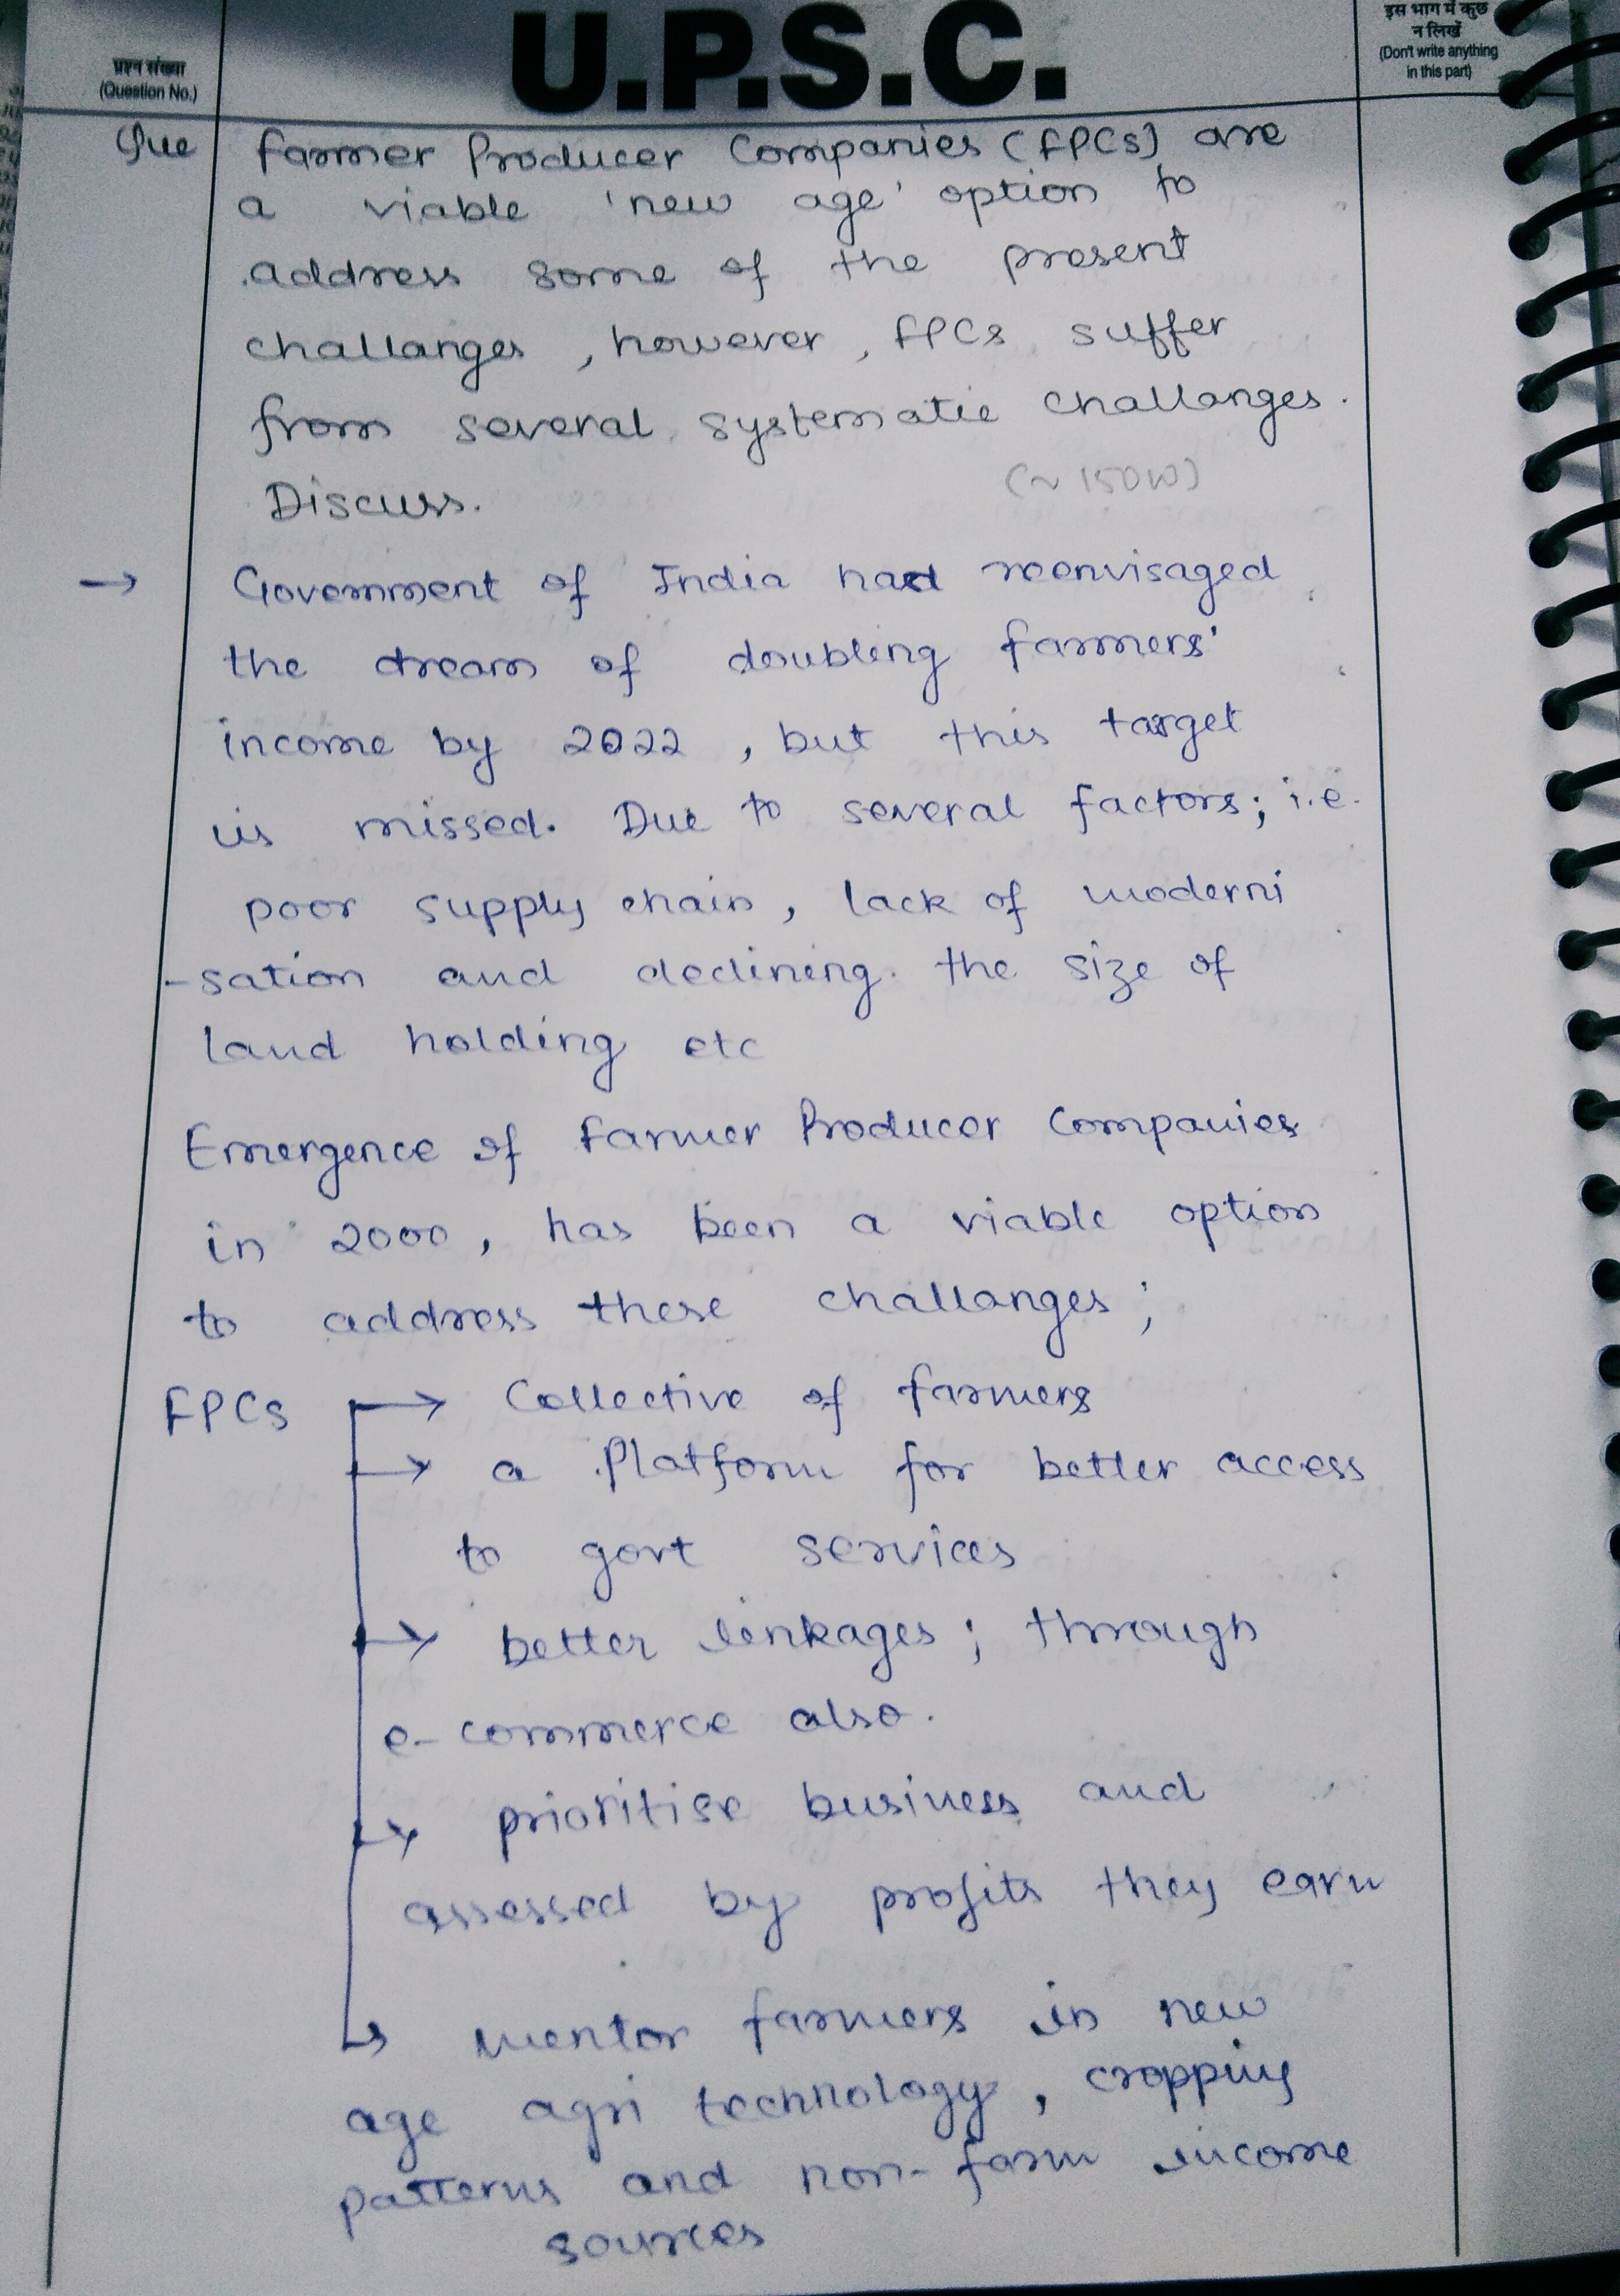 प्रश्न संख्या
(Question No.)
U.P.S.C.
इस भाग में कुछ
न लिखें
(Don't write anything
in this part)
Que Farmer Producer Companies (FPCs) are
a viable 'new age' option to
address some of the present
challanges, however, FPCs suffer
from several systematic challanges.
Discuss.
(~150W)
→ Government of India had reenvisaged
the dream of doubling farmers'
income by 2022, but this target
is missed. Due to several factors; i.e.
poor supply chain, lack of moderni
-sation and declining the size of
land holding etc
Emergence of Farmer Producer Companies
in 2000, has been a viable option
to address these challanges;
FPCs → Collective of farmers
→ a Platform for better access
to govt services
→ better linkages; through
e-commerce also.
→ prioritise business and
assessed by profits they earn
↳ mentor farmers in new
age agri technology, cropping
patterns and non-farm income
sources